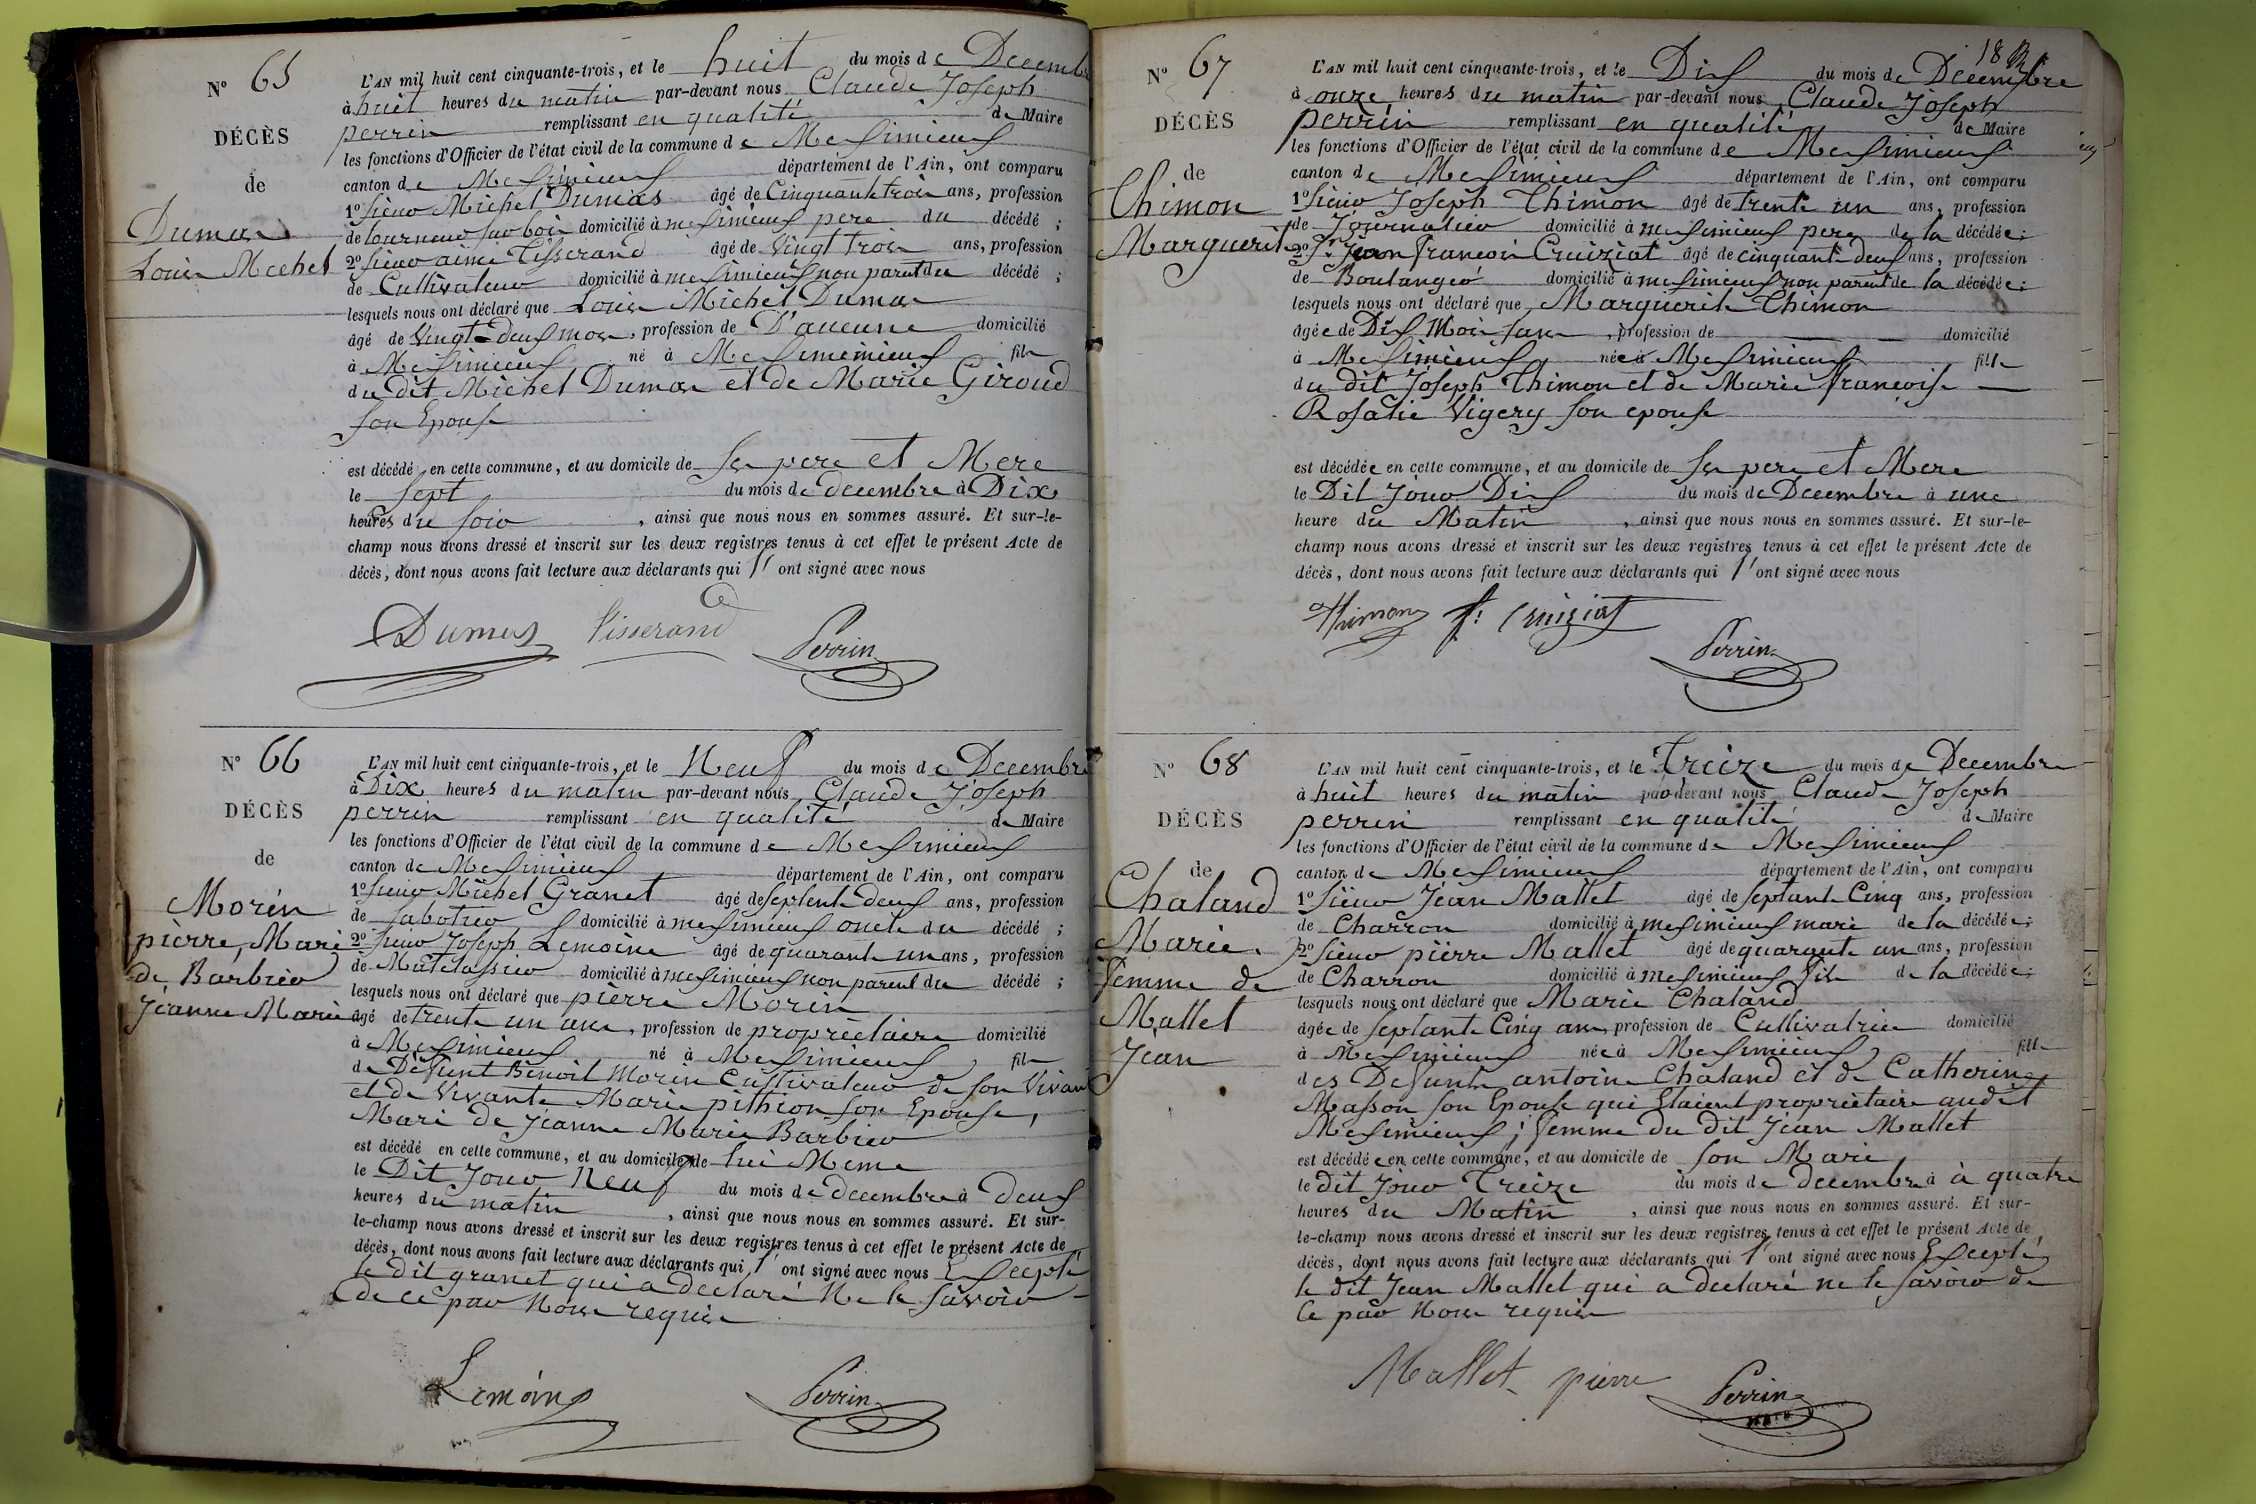 Nº 65
DÉCÈS
de
Dumas
Louis Michel
L'AN mil huit cent cinquante-trois, et le huit du mois de Decembre
à huit heures du matin par-devant nous Claude Joseph
perrin remplissant en qualité de Maire
les fonctions d'Officier de l'état civil de la commune de Meximieux
canton de Meximieux département de l'Ain, ont comparu
1º Sieur Michel Dumas âgé de Cinquante trois ans, profession
de tourneur sur bois domicilié à meximieux pere du décédé ;
2º Sieur aimé Tisserand âgé de vingt trois ans, profession
de Cultivateur domicilié à meximieux non parent du décédé ;
lesquels nous ont déclaré que Louis Michel Dumas
âgé de Vingt deux mois, profession de D'aucune domicilié
à Meximieux né à Meximimieux fils
du dit Michel Dumas et de Marie Giroud
son Epouse
est décédé en cette commune, et au domicile de ses pere et Mere
le sept du mois de decembre à Dix
heures du soir, ainsi que nous nous en sommes assuré. Et sur-le-
champ nous avons dressé et inscrit sur les deux registres tenus à cet effet le présent Acte de
décès, dont nous avons fait lecture aux déclarants qui l' ont signé avec nous
Dumas Tisserand Perrin
Nº 66
DÉCÈS
de
Morin
pierre, Mari
de Barbier
Jeanne Marie
L'AN mil huit cent cinquante-trois, et le Neuf du mois de Decembre
à Dix heures du matin par-devant nous Claude Joseph
perrin remplissant en qualité de Maire
les fonctions d'Officier de l'état civil de la commune de Meximieux
canton de Meximieux département de l'Ain, ont comparu
1º Sieur Michel Granet âgé de septente deux ans, profession
de sabotier domicilié à meximieux oncle du décédé ;
2º Sieur Joseph Lemoine âgé de quarante un ans, profession
de Matelassier domicilié à meximieux non parent du décédé ;
lesquels nous ont déclaré que pierre Morin
âgé de trente un ans, profession de propriétaire domicilié
à Meximieux né à Meximieux fils
de Défunt Benoit Morin Cultivateur de son Vivant
et de Vivante Marie pithion son Epouse,
Mari de Jeanne Marie Barbier
est décédé en cette commune, et au domicile de lui Meme
le Dit Jour Neuf du mois de decembre à deux
heures du matin, ainsi que nous nous en sommes assuré. Et sur-
le-champ nous avons dressé et inscrit sur les deux registres tenus à cet effet le présent Acte de
décès, dont nous avons fait lecture aux déclarants qui l' ont signé avec nous Excepté
le dit granet qui a declaré Ne le savoir
de ce par Nous requis
Lemoine Perrin
Nº 67
DÉCÈS
de
Thimon
Marguerite
L'AN mil huit cent cinquante-trois, et le Dix du mois de Decembre
à onze heures du matin par-devant nous Claude Joseph
perrin remplissant en qualité de Maire
les fonctions d'Officier de l'état civil de la commune de Meximieux
canton de Meximieux département de l'Ain, ont comparu
1º Sieur Joseph Thimon âgé de trente un ans, profession
de Journalier domicilié à meximieux pere de la décédée ;
2º Sr Jean francois Cruiziat âgé de cinquante deux ans, profession
de Boulanger domicilié à meximieux non parent de la décédée ;
lesquels nous ont déclaré que Marguerite Thimon
âgée de Dix Mois, profession de domicilié
à Meximieux née à Meximieux fille
du dit Joseph Thimon et de Marie francoise
Rosalie Vigery son epouse
est décédée en cette commune, et au domicile de ses pere et Mere
le Dit Jour Dix du mois de Decembre à une
heure du Matin, ainsi que nous nous en sommes assuré. Et sur-le-
champ nous avons dressé et inscrit sur les deux registres tenus à cet effet le présent Acte de
décès, dont nous avons fait lecture aux déclarants qui l' ont signé avec nous
Thimon f. Cruiziat
Perrin
Nº 68
DÉCÈS
de
Chaland
Marie.
femme de
Mallet
Jean
L'AN mil huit cent cinquante-trois, et le Treize du mois de Decembre
à huit heures du matin par-devant nous Claude Joseph
perrin remplissant en qualité de Maire
les fonctions d'Officier de l'état civil de la commune de Meximieux
canton de Meximieux département de l'Ain, ont comparu
1º Sieur Jean Mallet âgé de septante Cinq ans, profession
de Charron domicilié à meximieux mari de la décédée ;
2º Sieur pierre Mallet âgé de quarante un ans, profession
de Charron domicilié à meximieux fils de la décédée ;
lesquels nous ont déclaré que Marie Chaland
âgée de septante Cinq ans, profession de Cultivatrice domicilié
à Meximieux née à Meximieux fille
des Defunts antoine Chaland et de Catherine
Masson son Epouse qui Etaient propriétaire audit
Meximieux ; femme du dit Jean Mallet
est décédée en cette commune, et au domicile de son Mari
le dit Jour Treize du mois de decembre à à quatre
heures du Matin, ainsi que nous nous en sommes assuré. Et sur-
le-champ nous avons dressé et inscrit sur les deux registres tenus à cet effet le présent Acte de
décès, dont nous avons fait lecture aux déclarants qui l' ont signé avec nous Excepté
le dit Jean Mallet qui a declaré ne le savoir de
Ce par Nous requis
Mallet pierre Perrin